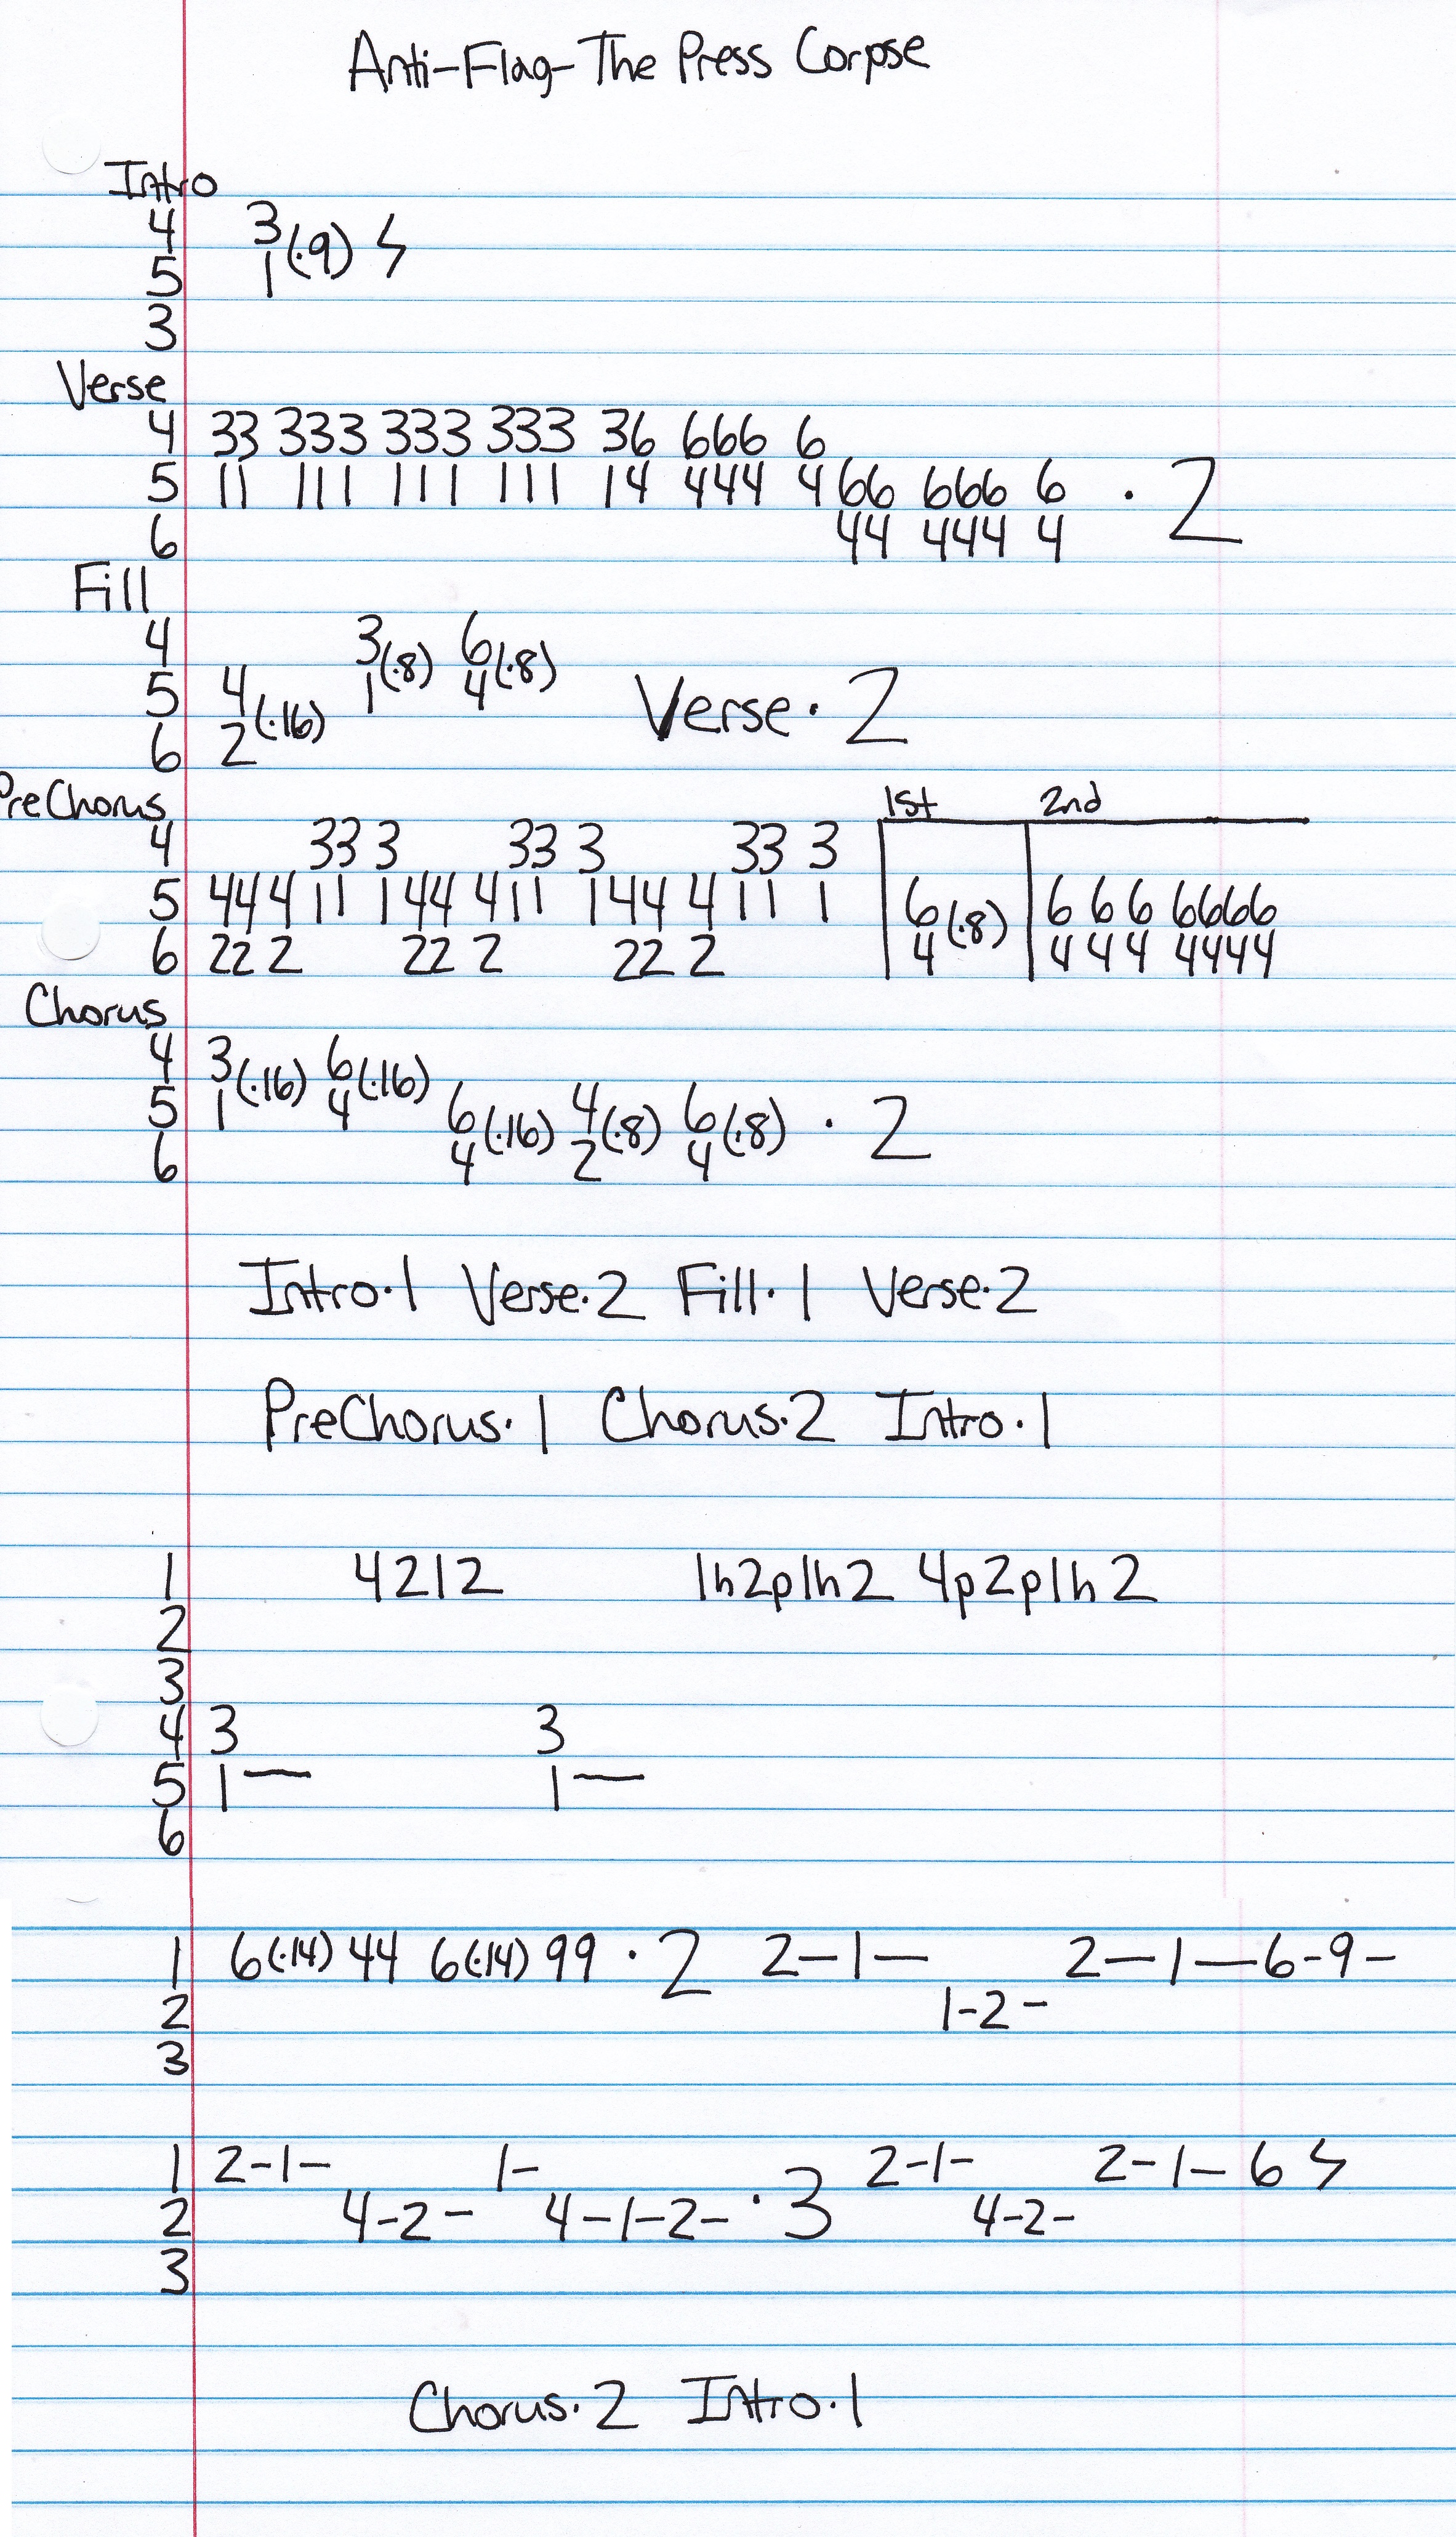 Anti-Flag-The Press Corpse
Intro
4 3
5 1 (·9) ϟ
3
Verse
4 33 333 333 333 36 666 6
5 11 111 111 111 14 444 4 66 666 6 · 2
6 44 444 4
Fill
4 3(·8) 6(·8)
5 4(·16) 1 4 Verse · 2
6 2
PreChorus 1st 2nd
4 33 3 33 3 33 3
5 44 4 11 1 44 4 11 1 44 4 11 1 6(·8) 6 6 6 6666
6 22 2 22 2 22 2 4 4 4 4 4444
Chorus
4 3(·16) 6(·16)
5 1 4 6(·16) 4(·8) 6(·8) · 2
6 4 2 4
Intro·1 Verse·2 Fill·1 Verse·2
PreChorus·1 Chorus·2 Intro·1
1 4212 1h2p1h2 4p2p1h2
2
3
4 3 3
5 1— 1—
6
1 6(·14) 44 6(·14) 99 · 2 2-1- 2-1-6-9-
2 1-2-
3
1 2-1- 1- 2-1- 2-1-6 ϟ
2 4-2- 4-1-2- · 3 4-2-
3
Chorus·2 Intro·1